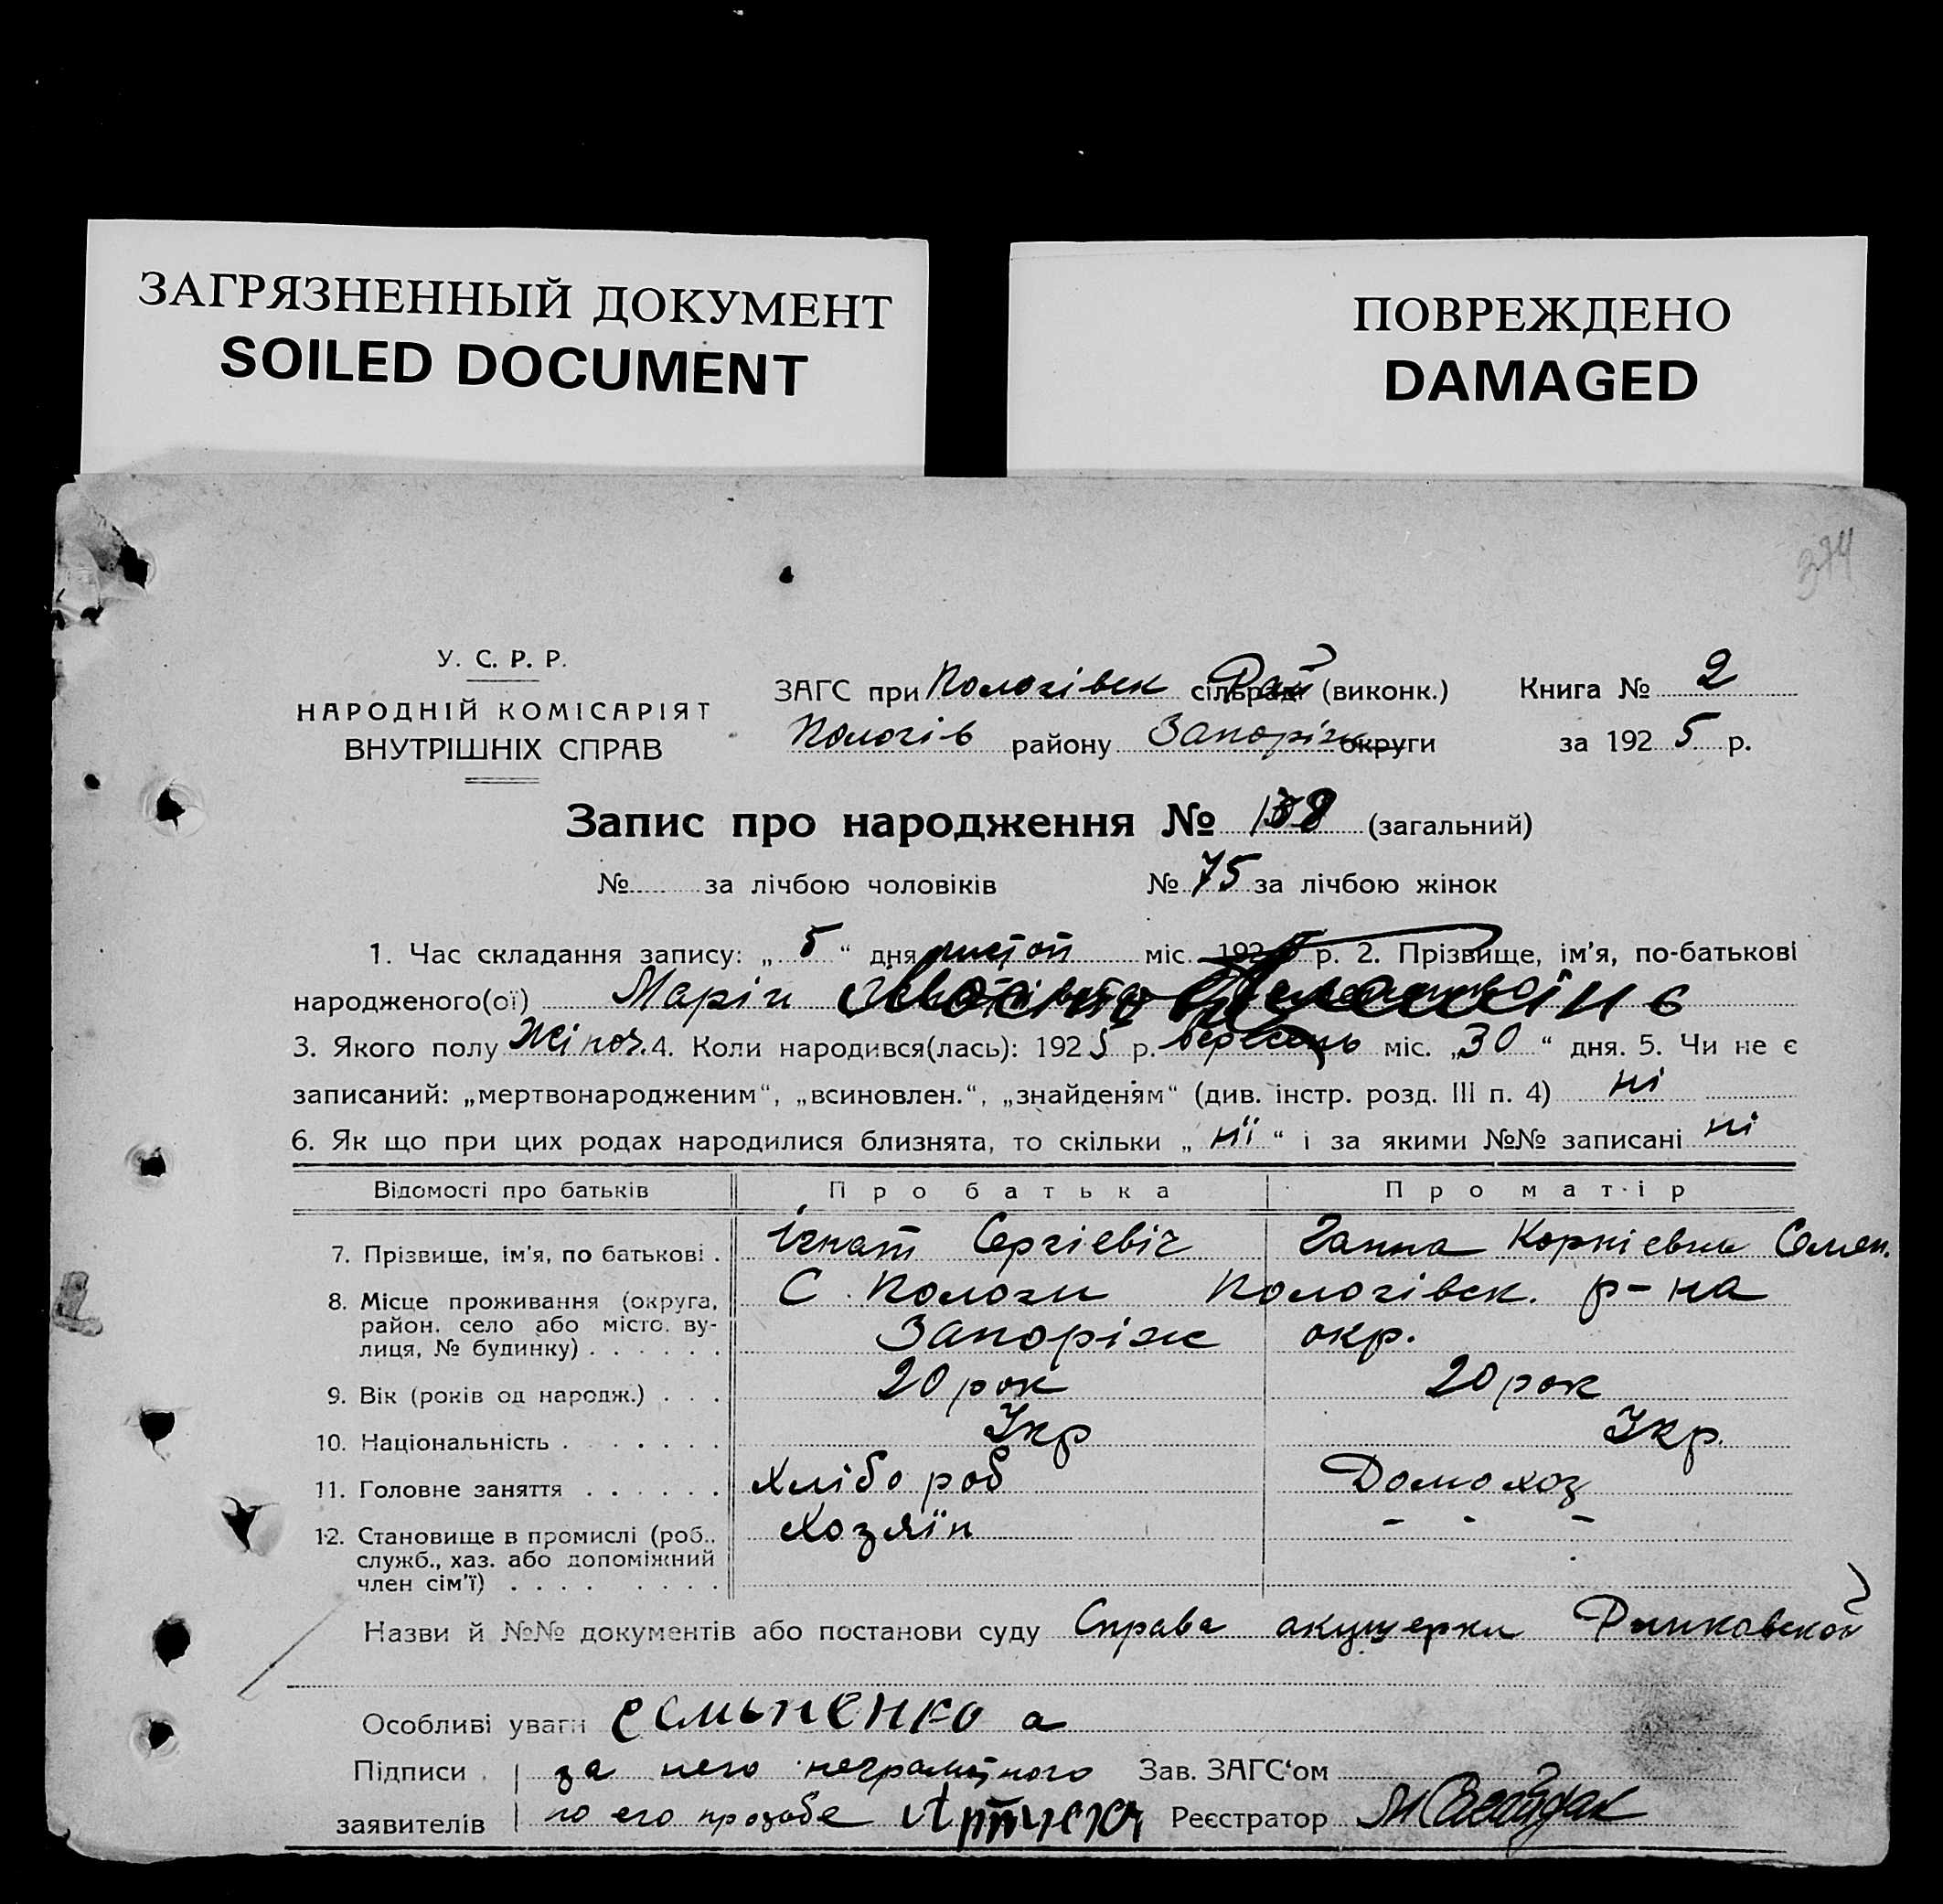 ЗАГРЯЗНЕННЫЙ ДОКУМЕНТ
SOILED DOCUMENT
ПОВРЕЖДЕНО
DAMAGED
374
У. С. Р. Р.
НАРОДНІЙ КОМІСАРІЯТ
ВНУТРІШНІХ СПРАВ
ЗАГС при Пологівск сільради Рай (виконк.)
Пологів району Запоріж округи
Книга № 2
за 1925 р.
Запис про народження № 138 (загальний)
№ за лічбою чоловіків № 75 за лічбою жінок
1. Час складання запису: „5“ дня листоп міс. 1925 р. 2. Прізвище, ім'я, по-батькові
народженого(ої) Марія
3. Якого полу Жіноч. 4. Коли народився(лась): 1925 р. вересень міс. „30“ дня. 5. Чи не є
записаний: „мертвонародженим“, „всиновлен.“, „знайденям“ (див. інстр. розд. III п. 4) ні
6. Як що при цих родах народилися близнята, то скільки „ нї “ і за якими №№ записані ні
Відомості про батьків Про батька Про матір
7. Прізвище, ім'я, по батькові . Ігнат Сергієвіч Ганна Корнієвна Семен.
8. Місце проживання (округа, район, село або місто, вулиця, № будинку) . . . . . . С. Пологи Пологівск. р-на
Запоріж окр.
9. Вік (років од народж.) . . . 20 рок 20 рок
10. Національність . . . . . . . Укр Укр.
11. Головне заняття . . . . . . Хлібороб Домохоз
12. Становище в промислі (роб., служб., хаз. або допоміжний член сім'ї) . . . . . . . . Хозяїн - - -
Назви й №№ документів або постанови суду Справа акушерки
Особливі уваги
Підписи за него неграмотного Зав. ЗАГС'ом
заявителів по его прозьбе Реєстратор